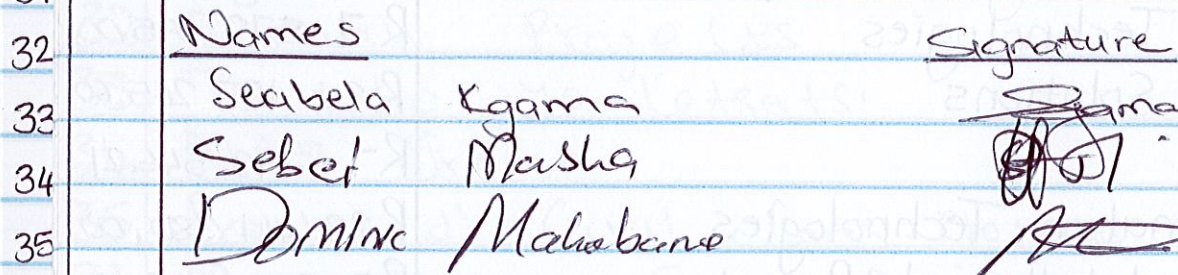 32 Names Signature
33 Seabela Kgama Sgama
34 Sebei Masha
35 Dominic Mahabane